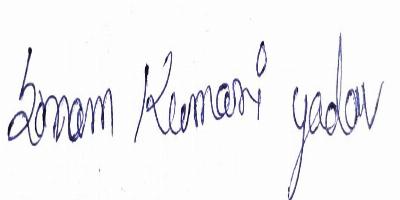 Sonam Kumari yadav